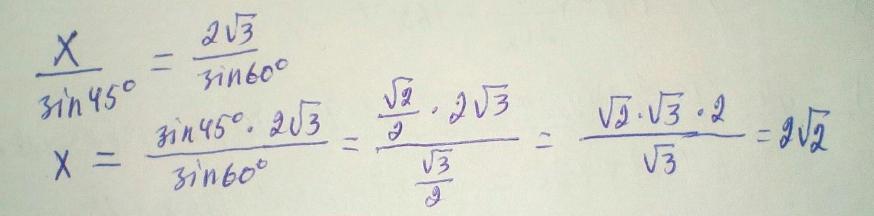 x/sin45° = 2√3/sin60°
x = sin45° · 2√3/sin60° = (√2/2 · 2√3)/(√3/2) = √2 · √3 · 2/√3 = 2√2